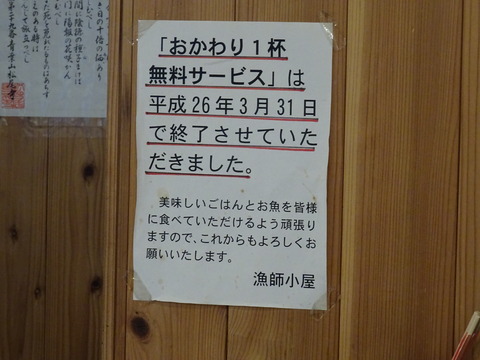 「おかわり１杯
無料サービス」は
平成26年3月31日
で終了させていた
だきました。
美味しいごはんとお魚を皆様
に食べていただけるよう頑張り
ますので、これからもよろしくお
願いいたします。
漁師小屋